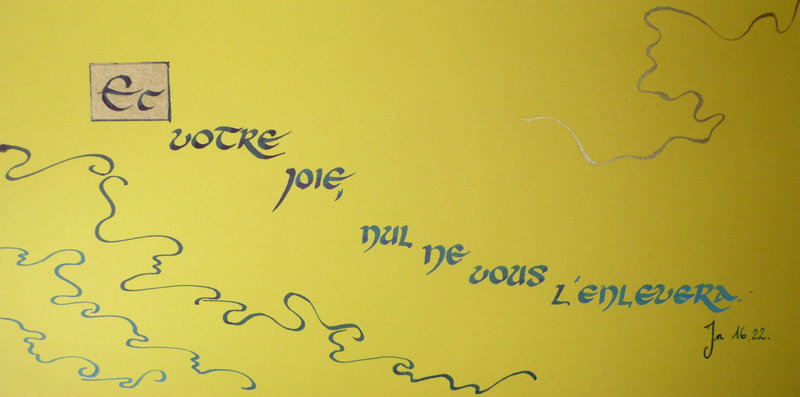 Et
votre
joie,
nul ne vous l'enlevera.
Jn 16,22.